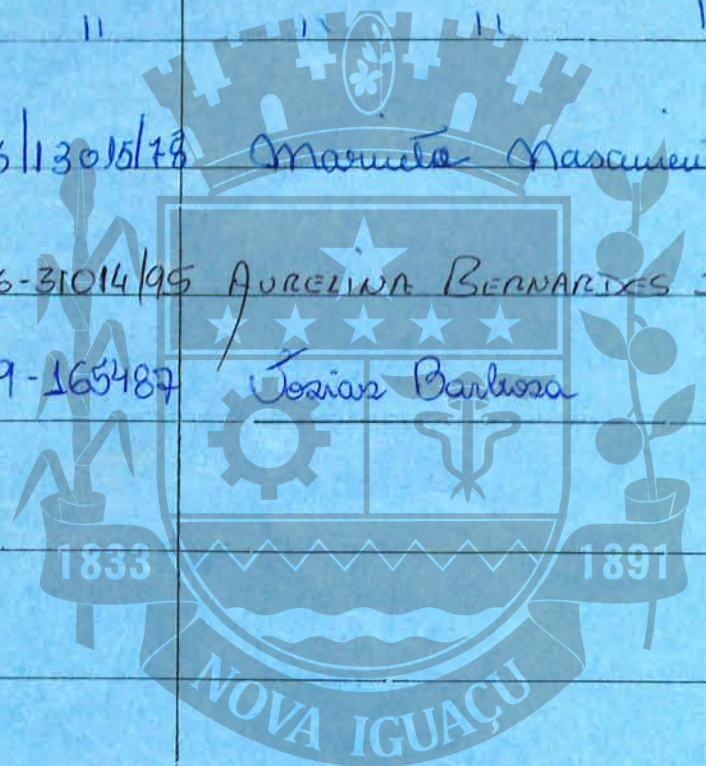 " " " 
6/13015/78 Marieta Nascimen
6-31014/95 AURELINA BERNARDES
9-165487 Josias Barbosa
1833 1891
NOVA IGUAÇU